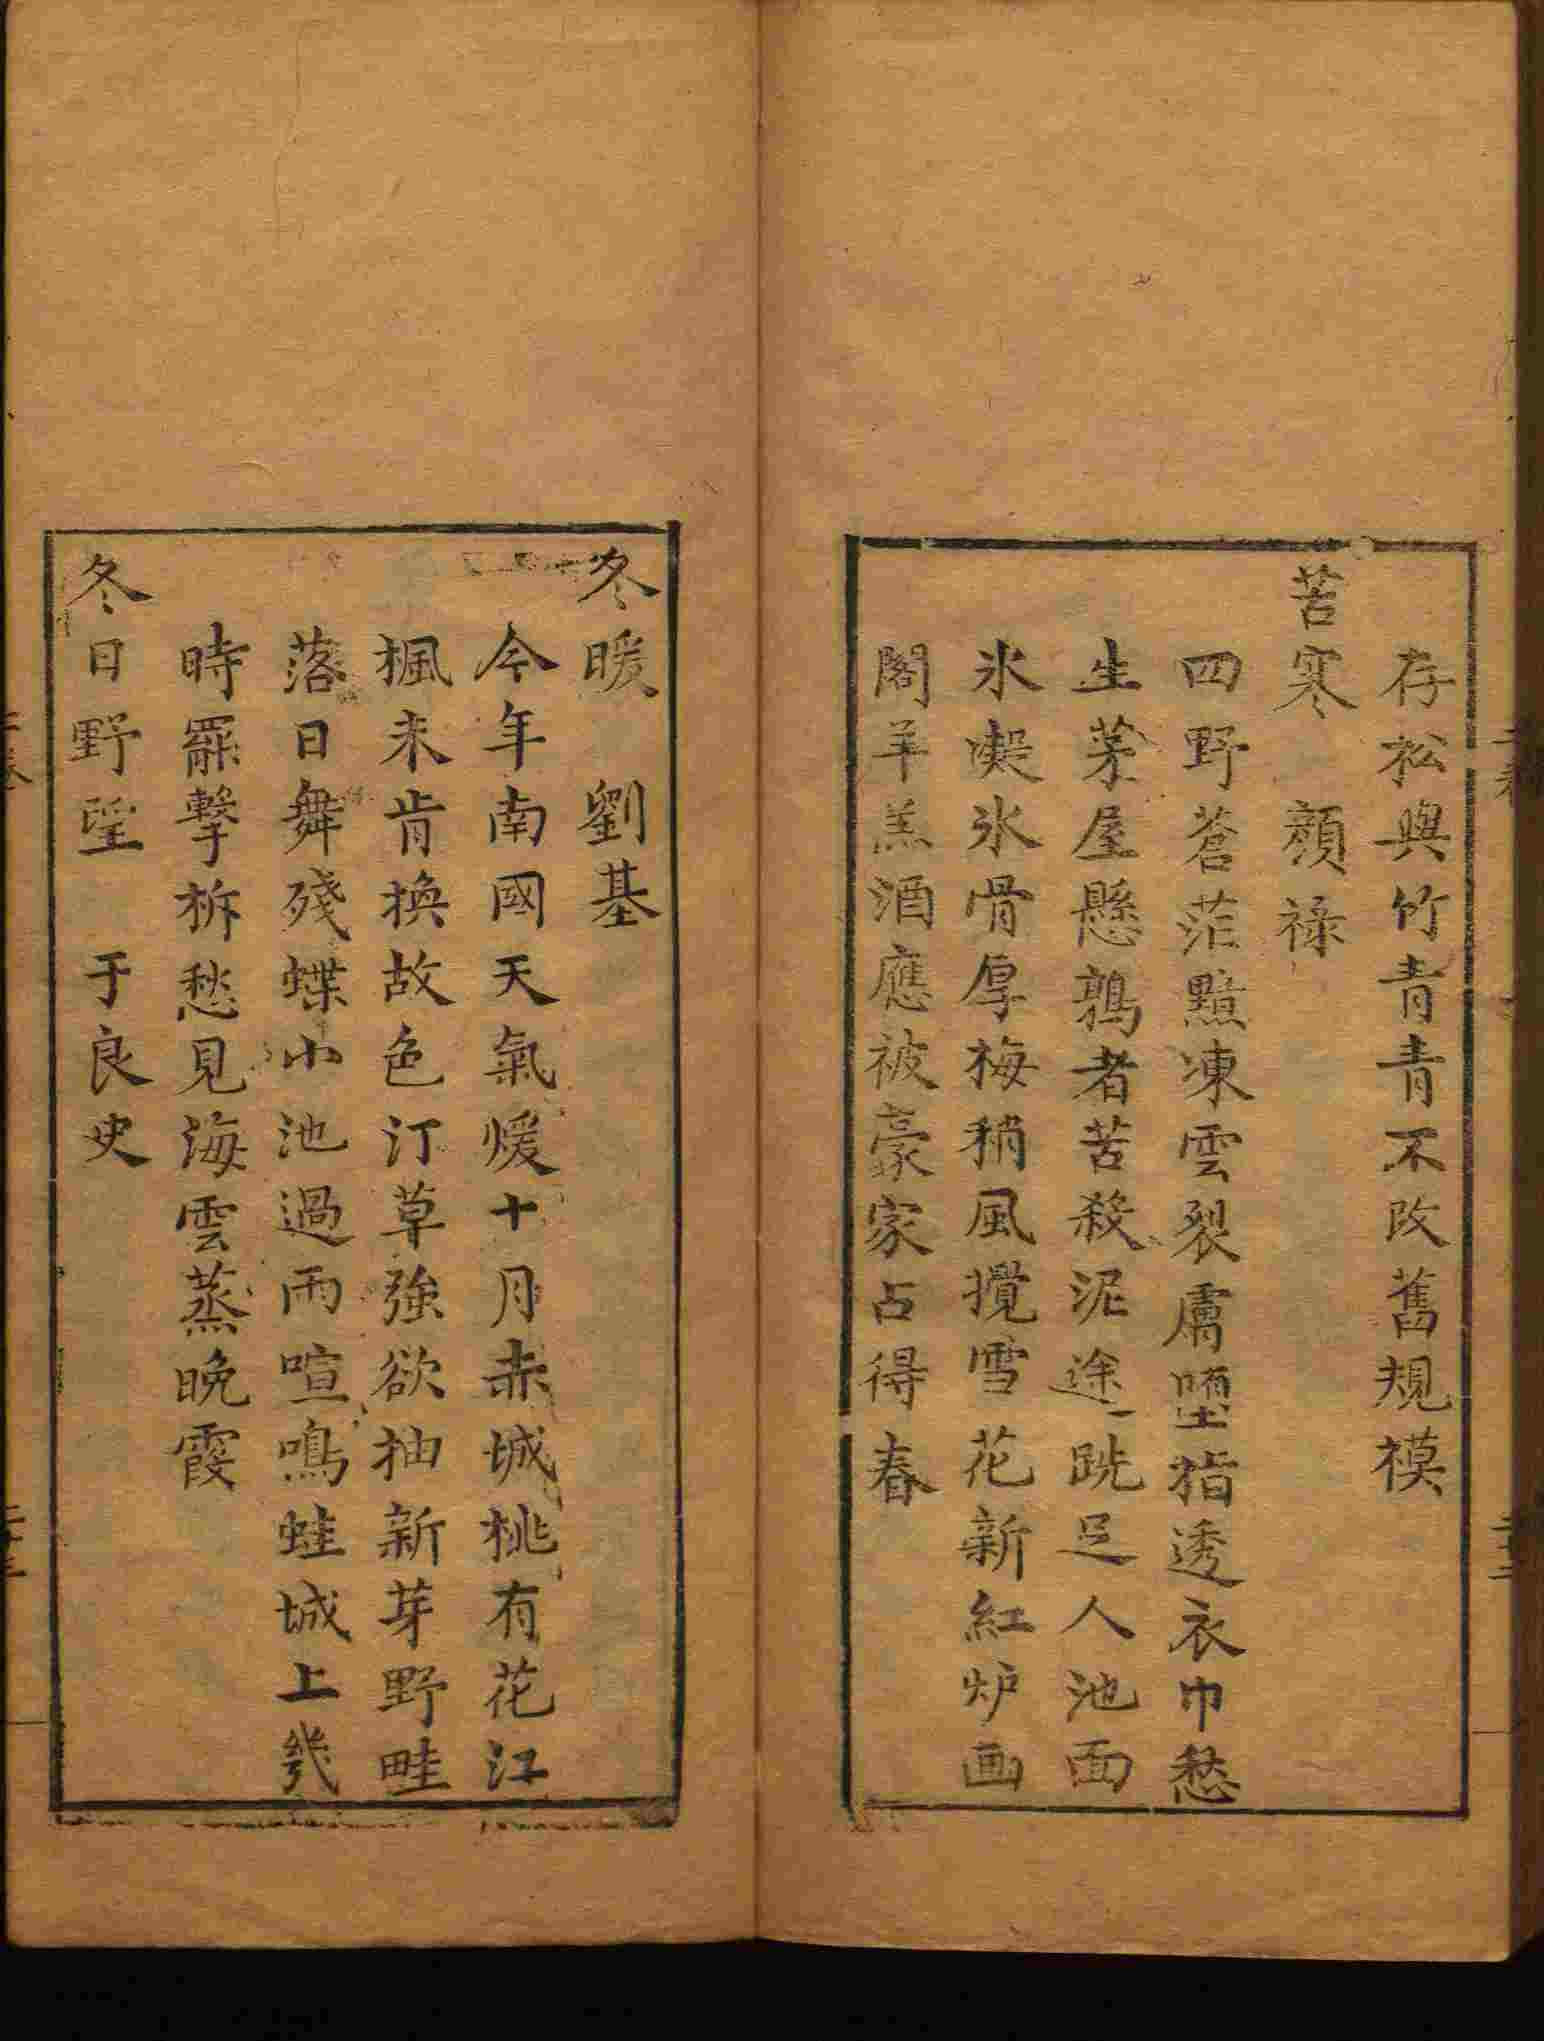 存松與竹青青不改舊規模
苦寒　顏祿
四野蒼茫黯凍雲裂膚墮指透衣巾愁
生茅屋懸鶉者苦殺泥途跣足人池面
氷凝氷骨厚梅稍風攪雪花新紅炉画
閣羊羔酒應被豪家占得春
冬暖　劉基
今年南國天氣煖十月赤城桃有花江
楓未肯換故色汀草強欲抽新芽野畦
落日舞殘蝶小池過雨喧鳴蛙城上幾
時罷擊柝愁見海雲蒸晚霞
冬日野望　于良史